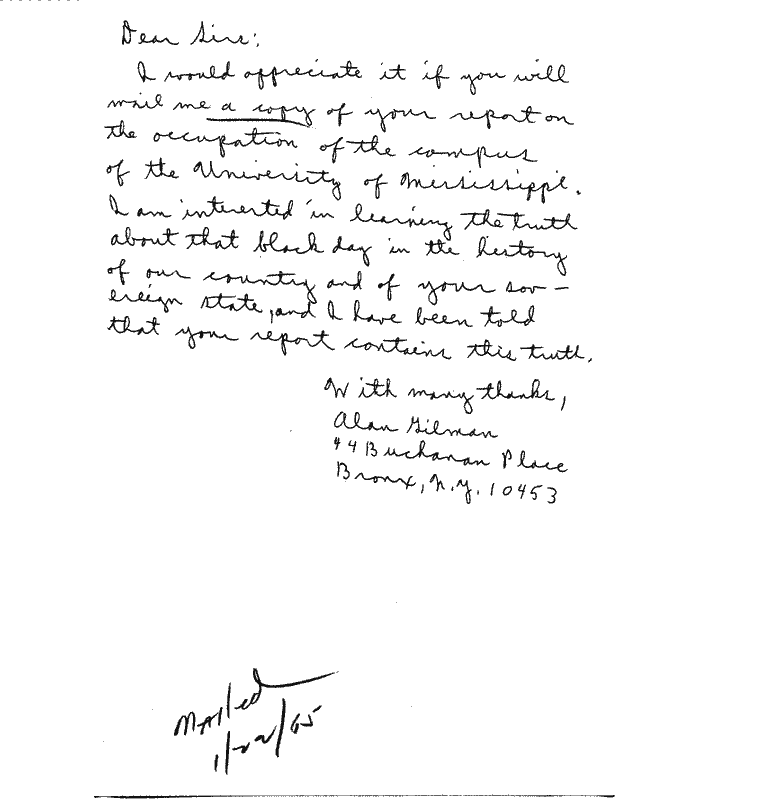 Dear Sirs:
I would appreciate it if you will
mail me a copy of your report on
the occupation of the campus
of the University of Mississippi.
I am interested in learning the truth
about that black day in the history
of our country and of your sov-
ereign state, and I have been told
that your report contains this truth.
With many thanks,
Alan Gilman
44 Buchanan Place
Bronx, N.Y. 10453
Mailed
1/22/65